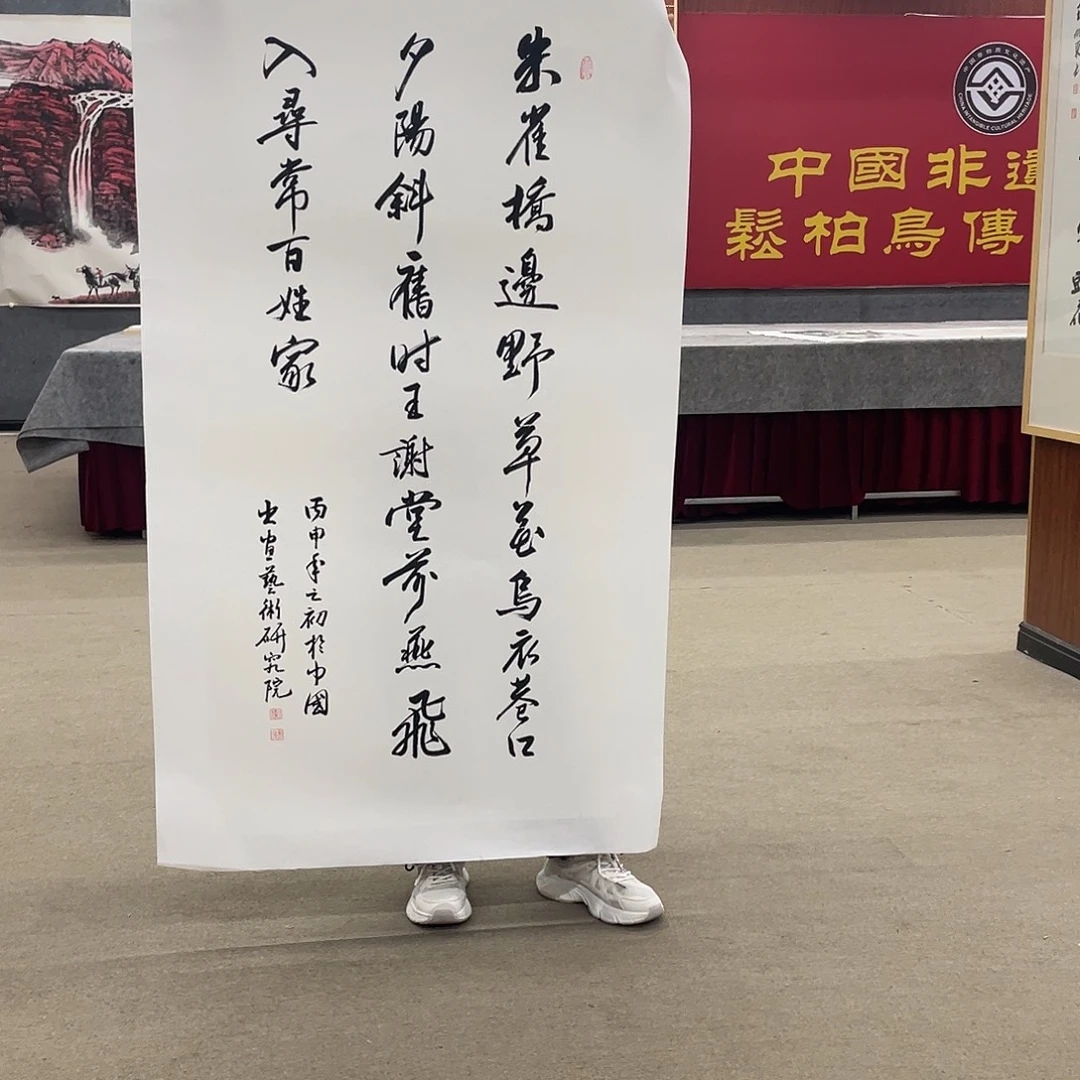 朱雀橋邊野草花烏衣巷口
夕陽斜舊时王謝堂前燕飛
入尋常百姓家
丙申年之初於中國
書畫藝術研究院
中國非遺
鬆柏鳥傳
CHINA INTANGIBLE CULTURAL HERITAGE